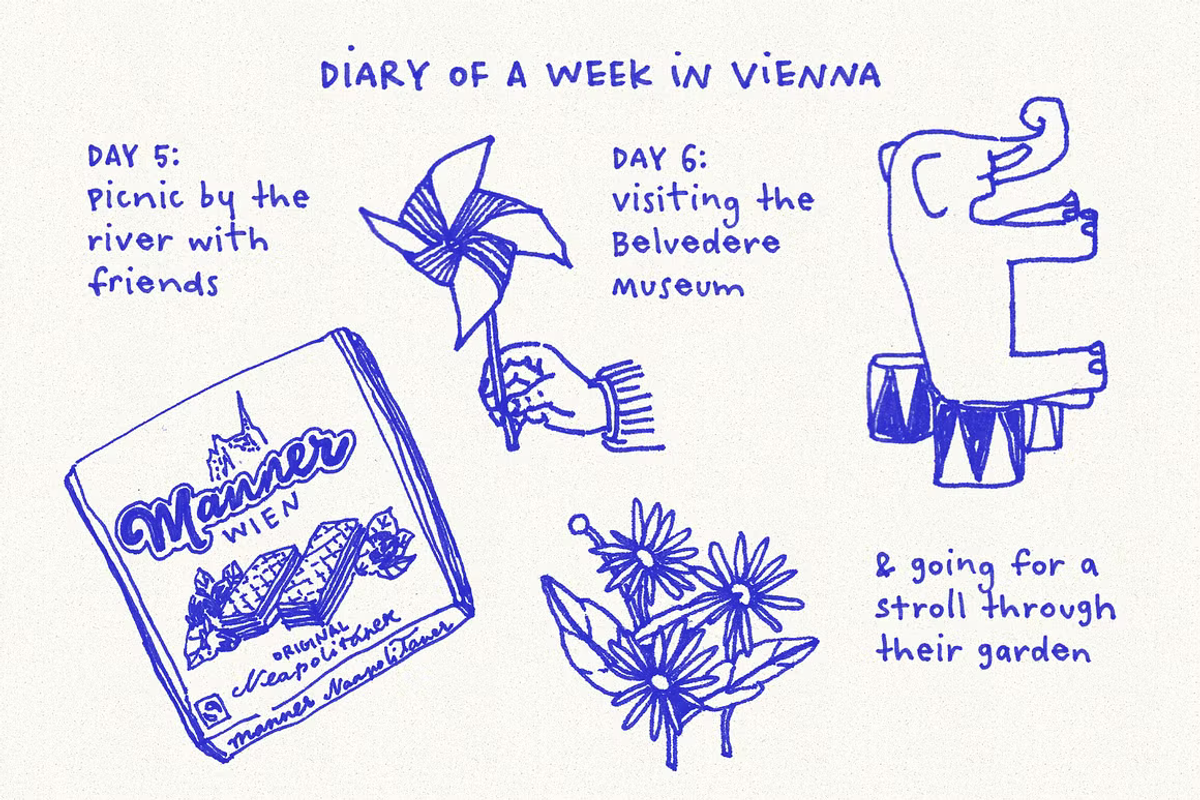 DIARY OF A WEEK IN VIENNA
DAY 5:
picnic by the
river with
friends
DAY 6:
visiting the
Belvedere
museum
Manner
WIEN
ORIGINAL
Neapolitaner
manner Neapolitaner
& going for a
stroll through
their garden